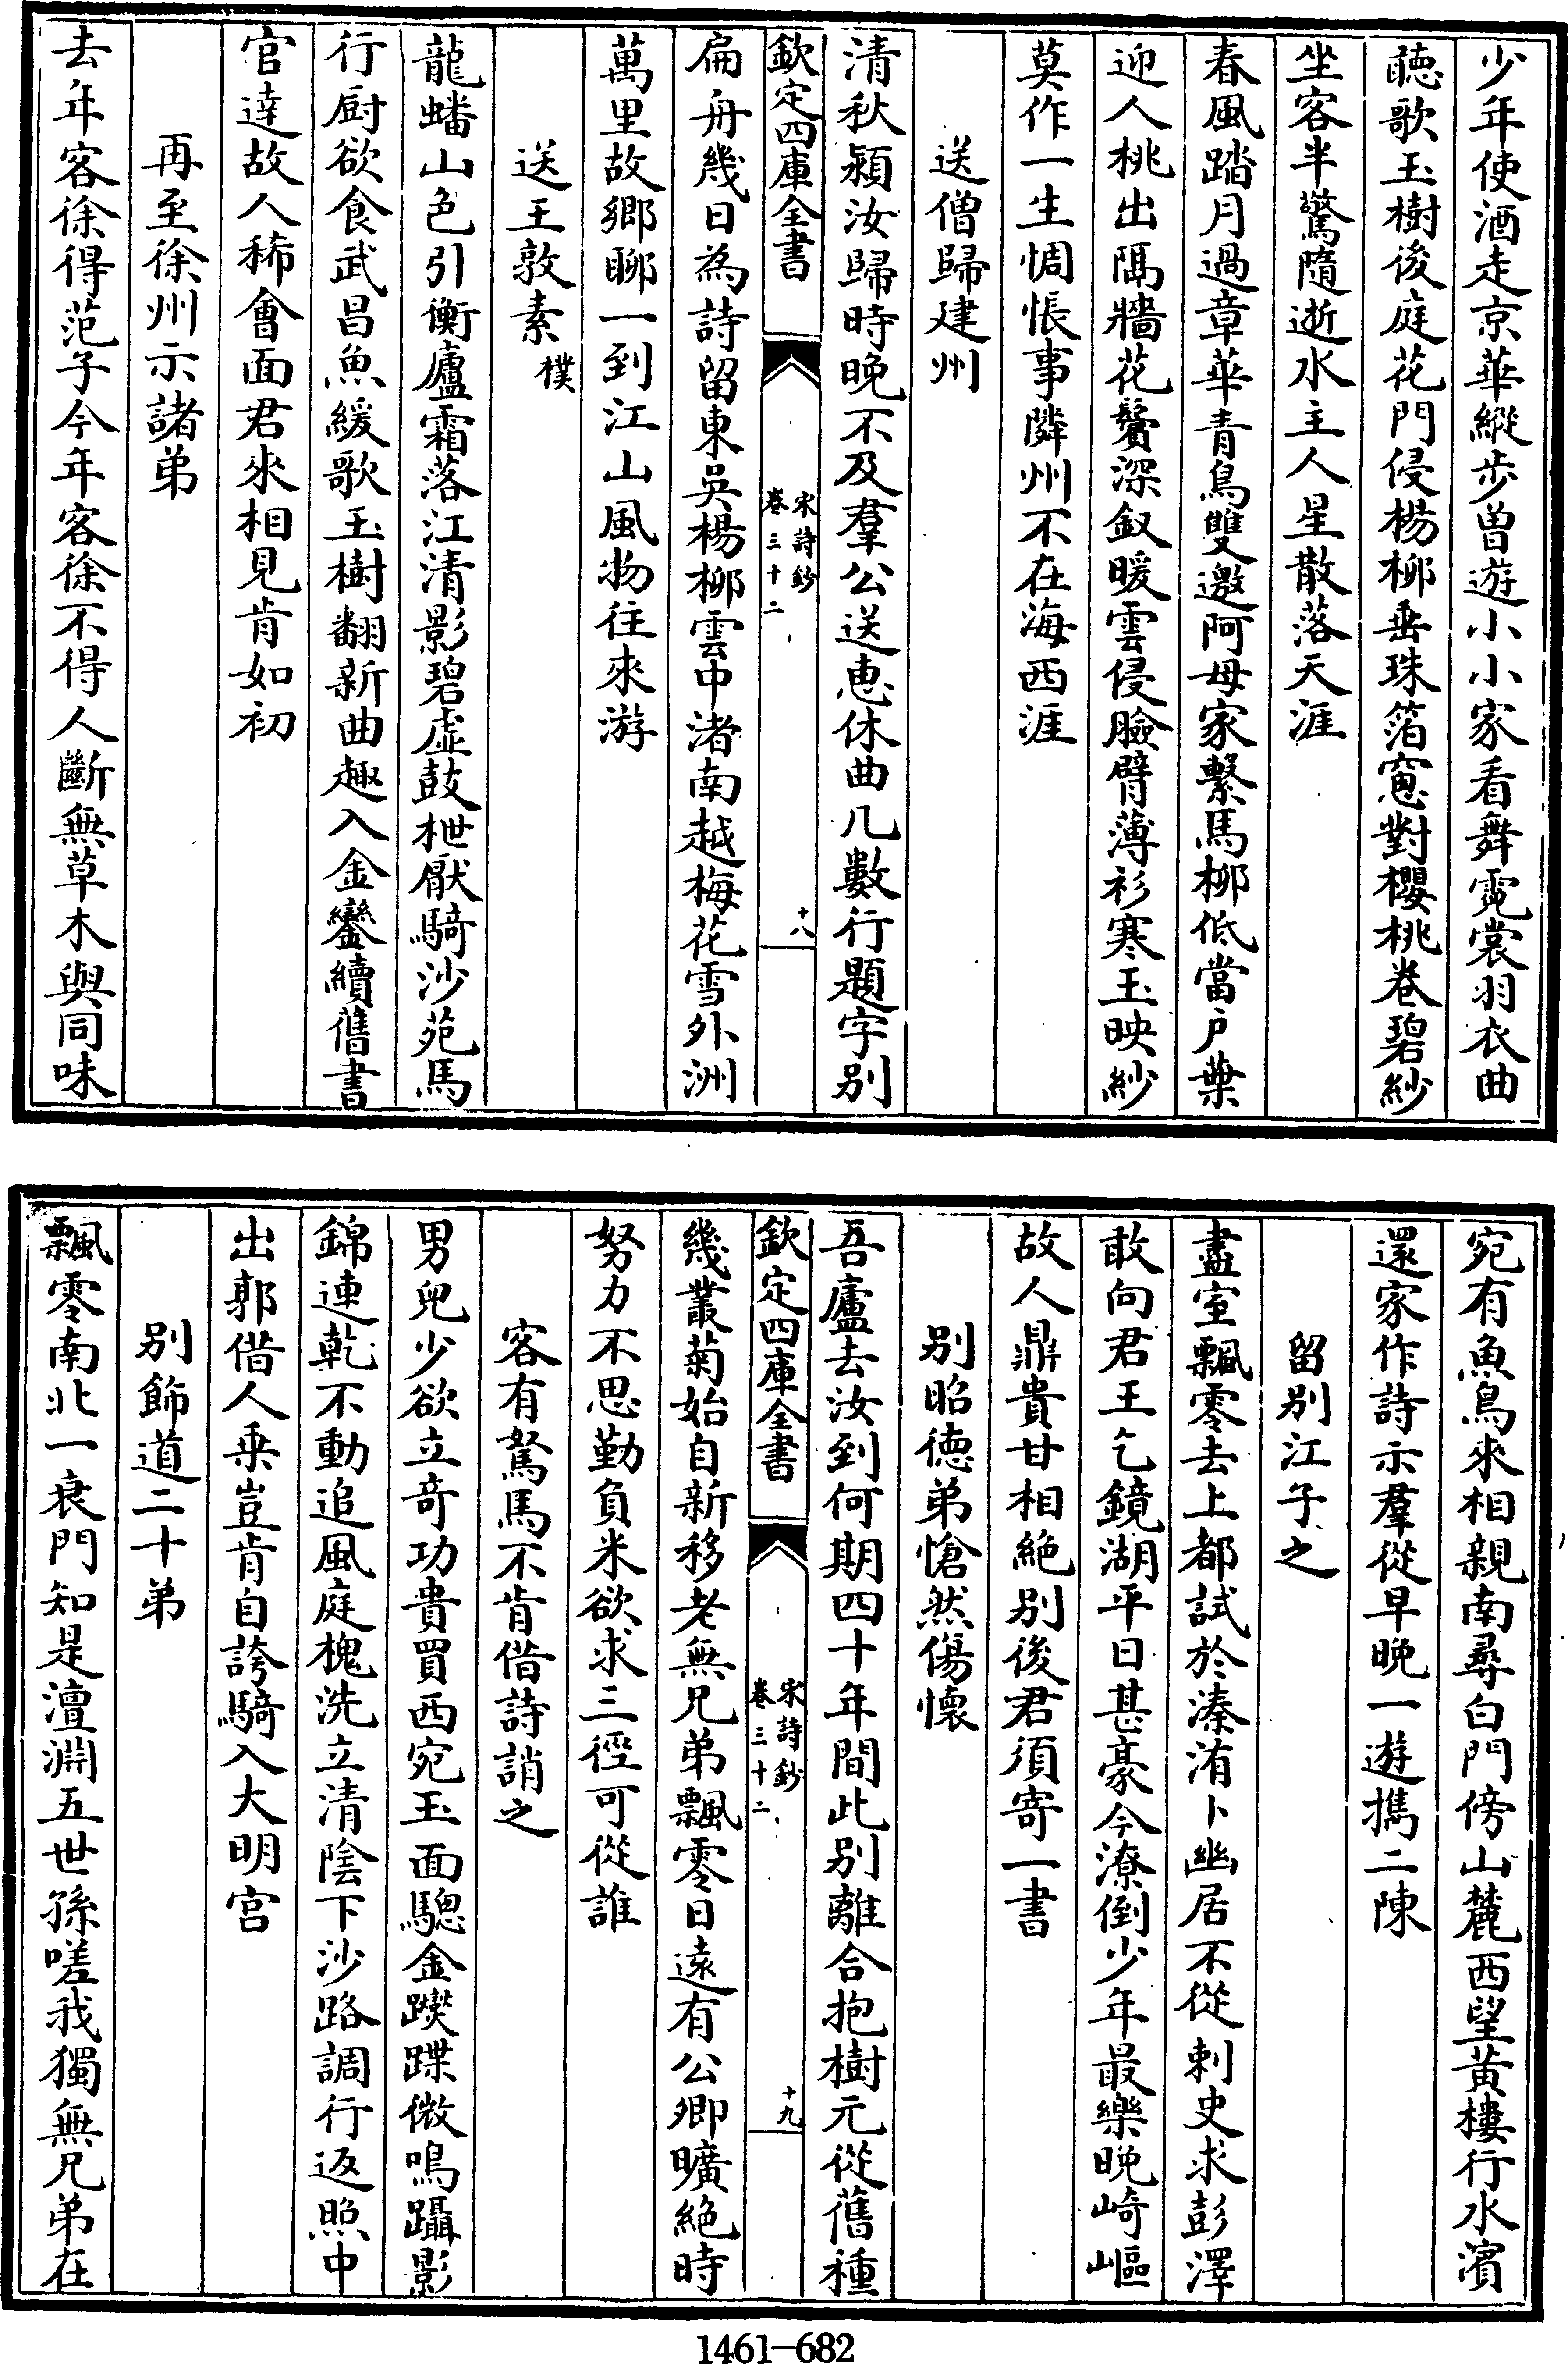 少年使酒走京華縱歩曾遊小小家看舞霓裳羽衣曲
聽歌玉樹後庭花門侵楊栁垂珠箔窻對櫻桃卷碧紗
坐客半驚隨逝水主人星散落天涯
春風踏月過章華青鳥雙邀阿母家繫馬栁低當戸葉
迎人桃出隔牆花鬢深釵暖雲侵臉臂薄衫寒玉映紗
莫作一生惆悵事隣州不在海西涯
送僧歸建州
清秋潁汝歸時晚不及羣公送惠休曲几數行題字别
欽定四庫全書
宋詩鈔
卷三十二
十八
扁舟幾日為詩留東吳楊栁雲中渚南越梅花雪外洲
萬里故鄉聊一到江山風物往來游
送王敦素樸
龍蟠山色引衡廬霜落江清影碧虛鼓枻厭騎沙苑馬
行厨欲食武昌魚緩歌玉樹翻新曲趣入金鑾續舊書
官達故人稀會面君來相見肯如初
再至徐州示諸弟
去年客徐得范子今年客徐不得人斷無草木與同味
宛有魚鳥來相親南尋白門傍山麓西望黃樓行水濱
還家作詩示羣從早晚一遊攜二陳
留别江子之
盡室飄零去上都試於溱洧卜幽居不從刺史求彭澤
敢向君王乞鏡湖平日甚豪今潦倒少年最樂晚崎嶇
故人鼎貴甘相絶别後君須寄一書
别昭德弟愴然傷懷
吾廬去汝到何期四十年間此别離合抱樹元從舊種
欽定四庫全書
宋詩鈔
卷三十二
十九
幾叢菊始自新移老無兄弟飄零日遠有公卿曠絶時
努力不思勤負米欲求三徑可從誰
客有駑馬不肯借詩誚之
男兒少欲立奇功貴買西宛玉面驄金躞蹀微鳴躡影
錦連乾不動追風庭槐洗立清陰下沙路調行返照中
出郭借人乗豈肯自誇騎入大明宫
别飾道二十弟
飄零南北一衰門知是澶淵五世孫嗟我獨無兄弟在
1461—682